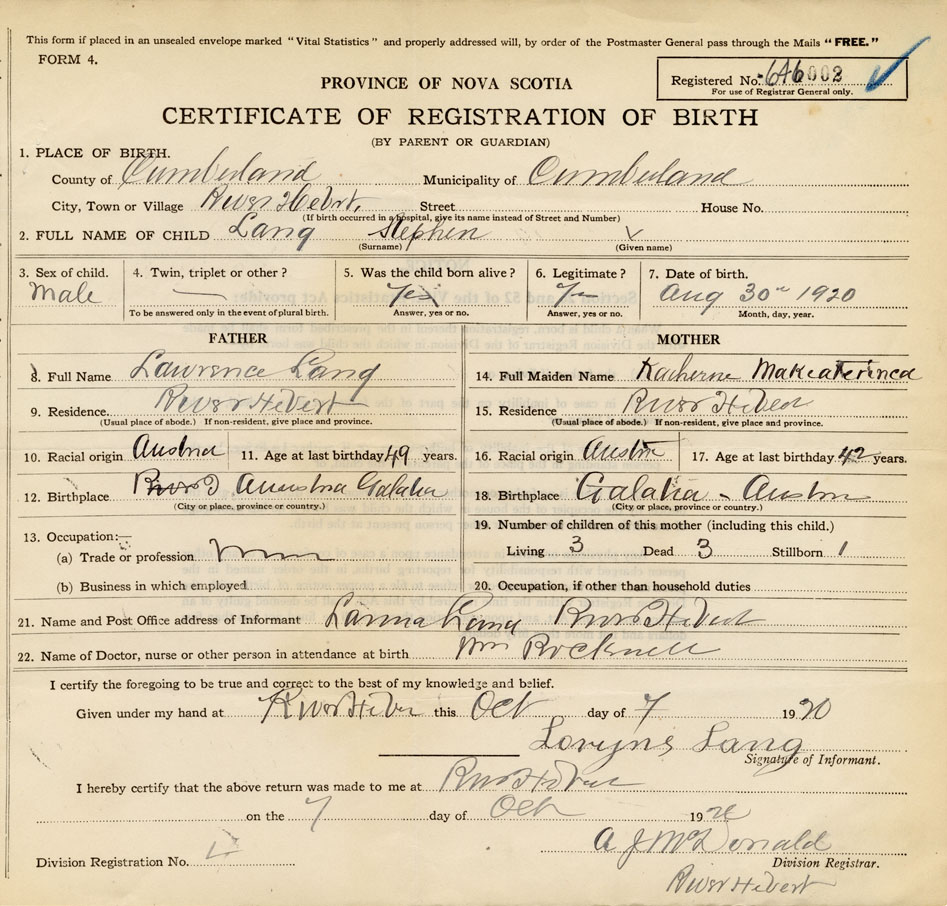 This form if placed in an unsealed envelope marked "Vital Statistics" and properly addressed will, by order of the Postmaster General pass through the Mails "FREE."
FORM 4.
Registered No. 646002
For use of Registrar General only.
PROVINCE OF NOVA SCOTIA
CERTIFICATE OF REGISTRATION OF BIRTH
(BY PARENT OR GUARDIAN)
1. PLACE OF BIRTH.
County of Cumberland Municipality of Cumberland
City, Town or Village River Hebert. Street House No.
(If birth occurred in a hospital, give its name instead of Street and Number)
2. FULL NAME OF CHILD Lang Stephen
(Surname) (Given name)
3. Sex of child. 4. Twin, triplet or other? 5. Was the child born alive? 6. Legitimate? 7. Date of birth.
Male — Yes Aug 30 1920
To be answered only in the event of plural birth. Answer, yes or no. Answer, yes or no. Month, day, year.
FATHER MOTHER
8. Full Name Lawrence Lang 14. Full Maiden Name Katherine
9. Residence. River Hebert 15. Residence River Hebert
(Usual place of abode.) If non-resident, give place and province. (Usual place of abode.) If non-resident, give place and province.
10. Racial origin Austria 11. Age at last birthday 49 years. 16. Racial origin Austria 17. Age at last birthday 42 years.
12. Birthplace Galatia 18. Birthplace Galatia - Austria
(City or place, province or country.) (City or place, province or country.)
19. Number of children of this mother (including this child.)
13. Occupation:—
Living 3 Dead 3 Stillborn 1
(a) Trade or profession
(b) Business in which employed 20. Occupation, if other than household duties
21. Name and Post Office address of Informant River Hebert
22. Name of Doctor, nurse or other person in attendance at birth Mrs Rocknell
I certify the foregoing to be true and correct to the best of my knowledge and belief.
Given under my hand at River Heber this Oct day of 7 1920
Lang
Signature of Informant.
I hereby certify that the above return was made to me at River Hebert
on the 7 day of Oct 1920
A J McDonald
Division Registration No. Division Registrar.
River Hebert